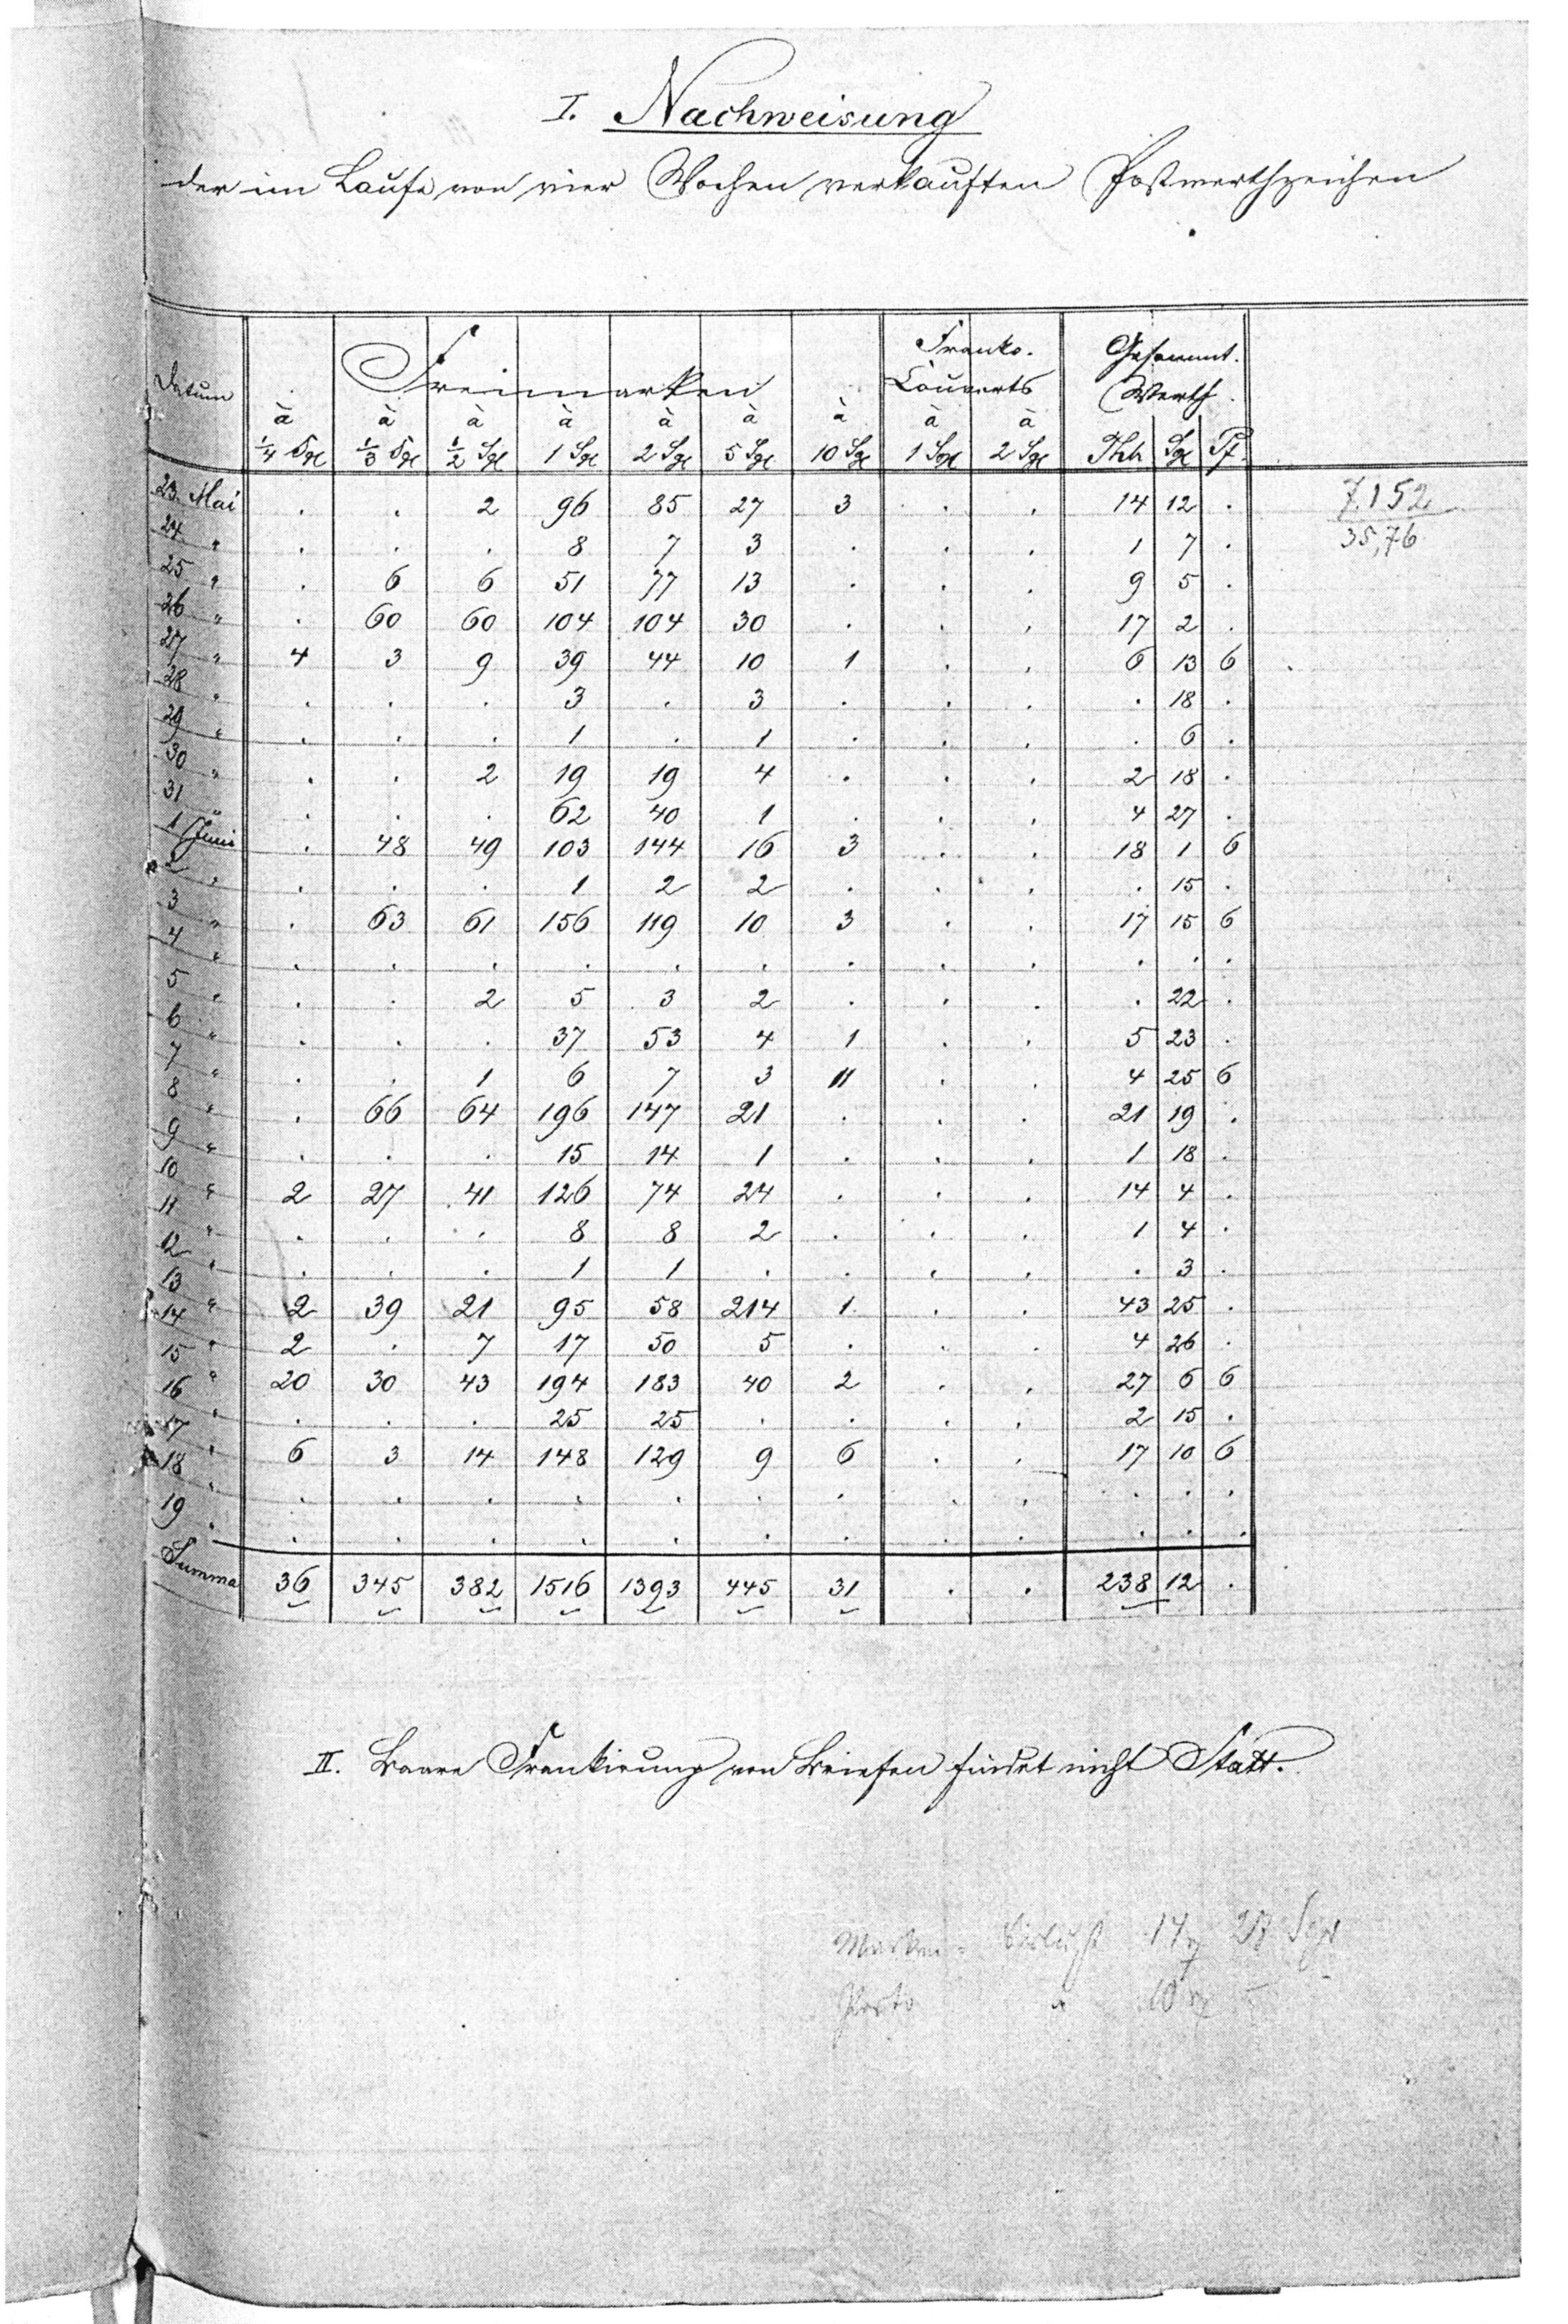 I. Nachweisung
der im Laufe von vier Wochen verkauften Postwerthzeichen
Datum Freimarken Franko- Couverts Gesammt- Werth
à 1/4 Sgr à 1/3 Sgr à 1/2 Sgr à 1 Sgr à 2 Sgr à 5 Sgr à 10 Sgr à 1 Sgr à 2 Sgr Thlr Sgr Pf.
23. Mai . . 2 96 85 27 3 . . 14 12 .
24 " . . . 8 7 3 . . . 1 7 .
25 " . 6 6 51 77 13 . . . 9 5 .
26 " . 60 60 104 104 30 . . . 17 2 .
27 " 4 3 9 39 44 10 1 . . 6 13 6
28 " . . . 3 . 3 . . . . 18 .
29 " . . . 1 . 1 . . . . 6 .
30 " . . 2 19 19 4 . . . 2 18 .
31 " . . . 62 40 1 . . . 4 27 .
1 Juni . 48 49 103 144 16 3 . . 18 1 6
2 " . . . 1 2 2 . . . . 15 .
3 " . 63 61 156 119 10 3 . . 17 15 6
4 " . . . . . . . . . . . .
5 " . . 2 5 3 2 . . . . 22 .
6 " . . . 37 53 4 1 . . 5 23 .
7 " . . 1 6 7 3 11 . . 4 25 6
8 " . 66 64 196 147 21 . . . 21 19 .
9 " . . . 15 14 1 . . . 1 18 .
10 " 2 27 41 126 74 24 . . . 14 4 .
11 " . . . 8 8 2 . . . 1 4 .
12 " . . . 1 1 . . . . . 3 .
13 " 2 39 21 95 58 214 1 . . 43 25 .
14 " 2 . 7 17 50 5 . . . 4 26 .
15 " 20 30 43 194 183 40 2 . . 27 6 6
16 " . . . 25 25 . . . . 2 15 .
17 " 6 3 14 148 129 9 6 . . 17 10 6
18 " . . . . . . . . . . . .
19 " . . . . . . . . . . . .
Summa 36 345 382 1516 1393 445 31 . . 238 12 .
7.152
35,76
II. Baare Frankirung von Briefen findet nicht Statt.
Marken-
Porto " 10